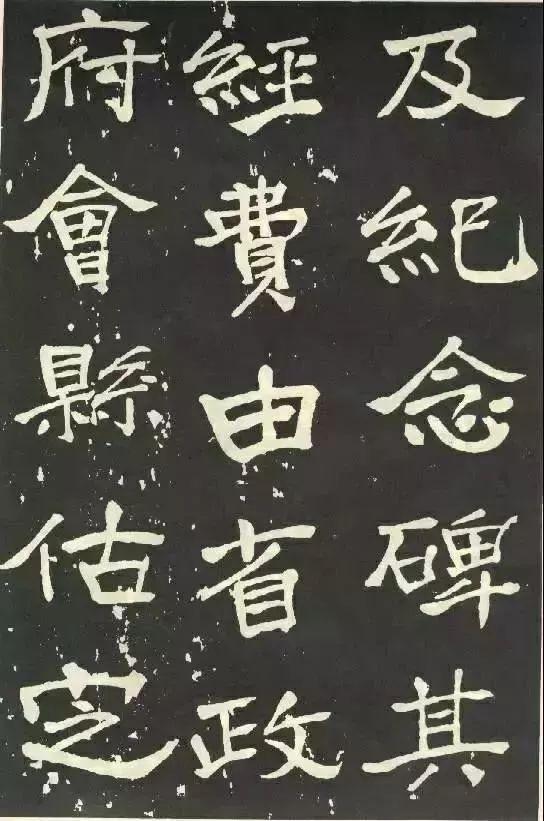 及紀念碑其
經費由省政
府會縣估定